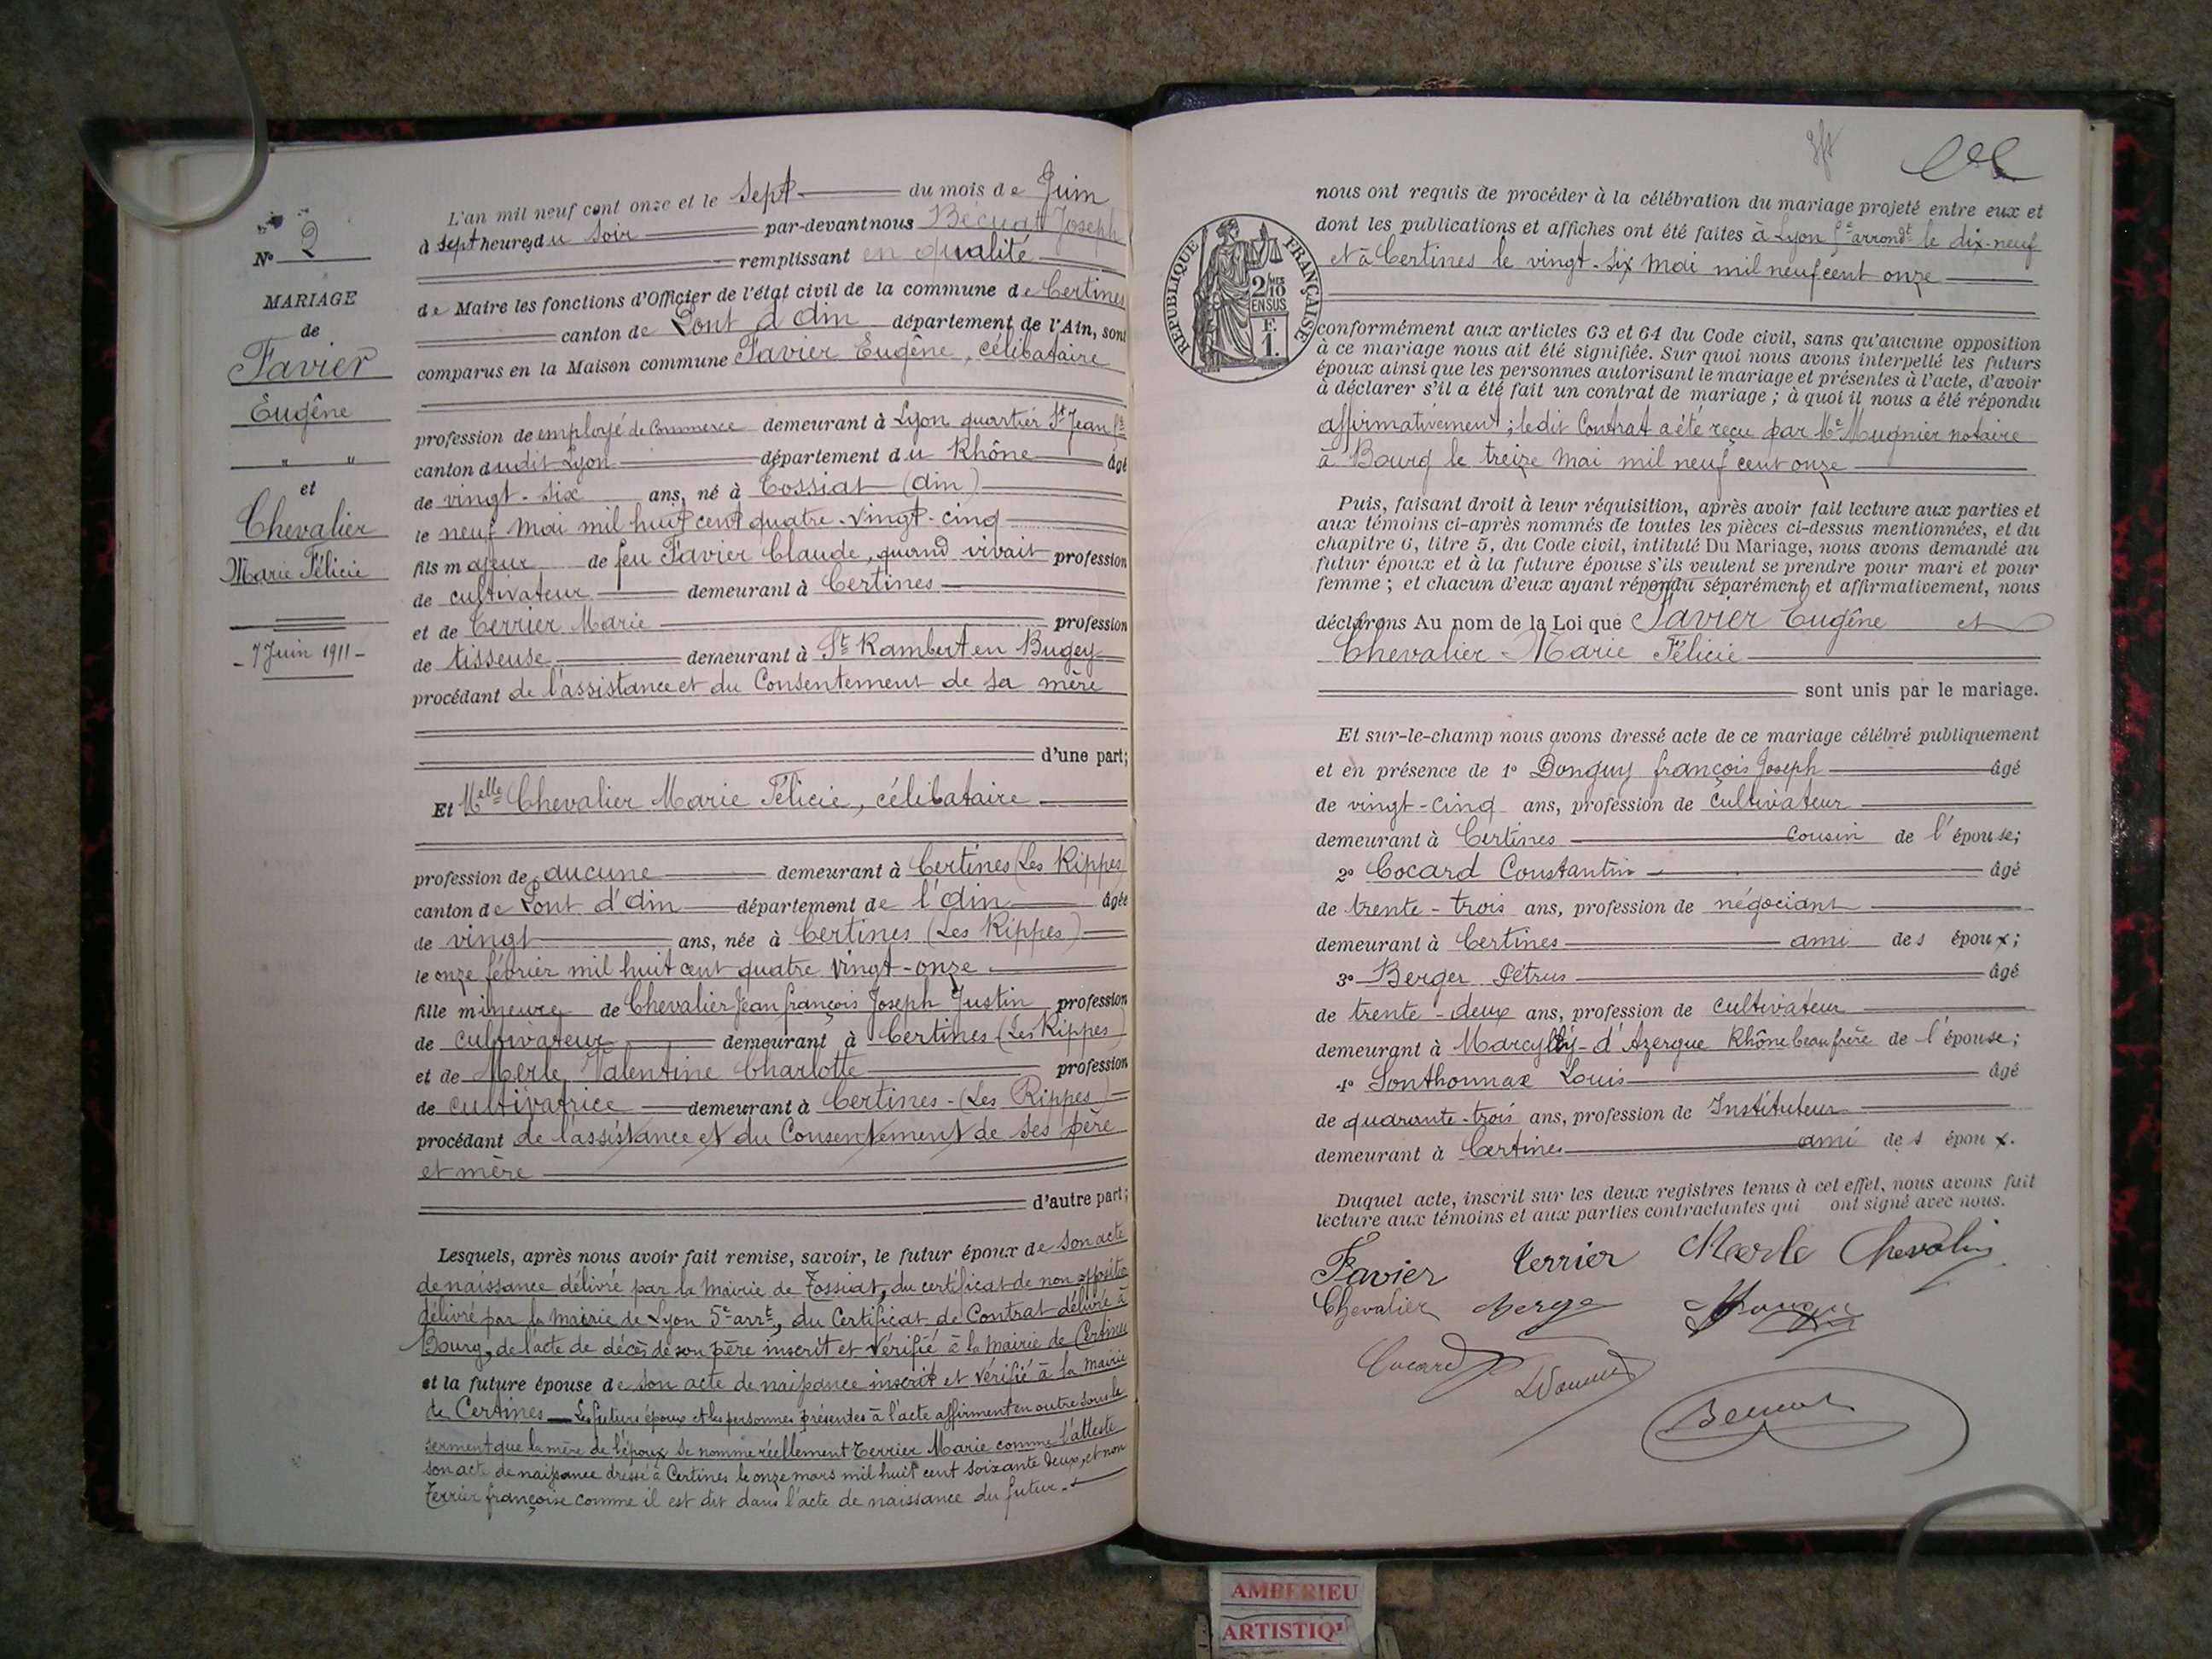 N° 2
MARIAGE
de
Favier
Eugène
" "
et
Chevalier
Marie Félicie
- 7 Juin 1911 -
L'an mil neuf cent onze et le sept du mois de Juin
à sept heures du soir par-devant nous Joseph
remplissant en qualité
de Maire les fonctions d'Officier de l'état civil de la commune de Certines
canton de Pont d'Ain département de l'Ain, sont
comparus en la Maison commune Favier Eugène, célibataire
profession de employé de Commerce demeurant à Lyon quartier St Jean
canton dudit Lyon département du Rhône âgé
de vingt-six ans, né à Tossiat (Ain)
le neuf mai mil huit cent quatre-vingt-cinq
fils majeur de feu Favier Claude, quand vivait profession
de cultivateur demeurant à Certines
et de Terrier Marie profession
de tisseuse demeurant à St Rambert en Bugey
procédant de l'assistance et du Consentement de sa mère
d'une part;
Et Melle Chevalier Marie Félicie, célibataire
profession de aucune demeurant à Certines (Les Rippes
canton de Pont d'Ain département de l'Ain âgée
de vingt ans, née à Certines (Les Rippes)
le onze février mil huit cent quatre vingt-onze
fille mineure de Chevalier Jean françois Joseph Justin profession
de cultivateur demeurant à Certines (Les Rippes)
et de Merle Valentine Charlotte profession
de cultivatrice demeurant à Certines - (Les Rippes)
procédant de l'assistance et du Consentement de ses père
et mère
d'autre part;
Lesquels, après nous avoir fait remise, savoir, le futur époux de son acte
de naissance délivré par la mairie de Tossiat, du certificat de non oppositio
délivré par la mairie de Lyon 5e arrt, du Certificat de Contrat délivré à
Bourg, de l'acte de décès de son père inscrit et vérifié à la mairie de Certines
et la future épouse de son acte de naissance inscrit et vérifié à la mairie
de Certines Les futurs époux et les personnes présentes à l'acte affirment en outre sous le
serment que la mère de l'époux se nomme réellement Terrier Marie comme l'atteste
son acte de naissance dressé à Certines le onze mars mil huit cent soixante deux, et non
Terrier françoise comme il est dit dans l'acte de naissance du futur.
RÉPUBLIQUE FRANÇAISE
2 MES 10
EN SUS
F.
1.
nous ont requis de procéder à la célébration du mariage projeté entre eux et
dont les publications et affiches ont été faites à Lyon 5e arrondt le dix-neuf
et à Certines le vingt-six mai mil neuf cent onze
conformément aux articles 63 et 64 du Code civil, sans qu'aucune opposition
à ce mariage nous ait été signifiée. Sur quoi nous avons interpellé les futurs
époux ainsi que les personnes autorisant le mariage et présentes à l'acte, d'avoir
à déclarer s'il a été fait un contrat de mariage ; à quoi il nous a été répondu
affirmativement ; ledit Contrat a été reçu par Me Mugnier notaire
à Bourg le treize mai mil neuf cent onze
Puis, faisant droit à leur réquisition, après avoir fait lecture aux parties et
aux témoins ci-après nommés de toutes les pièces ci-dessus mentionnées, et du
chapitre 6, titre 5, du Code civil, intitulé Du Mariage, nous avons demandé au
futur époux et à la future épouse s'ils veulent se prendre pour mari et pour
femme ; et chacun d'eux ayant répondu séparément et affirmativement, nous
déclarons Au nom de la Loi que Favier Eugène et
Chevalier Marie Félicie
sont unis par le mariage.
Et sur-le-champ nous avons dressé acte de ce mariage célébré publiquement
et en présence de 1° Donguy françois Joseph âgé
de vingt-cinq ans, profession de cultivateur
demeurant à Certines cousin de l'épouse;
2° Cocard Constantin âgé
de trente-trois ans, profession de négociant
demeurant à Certines ami des époux;
3° Berger Pétrus âgé
de trente-deux ans, profession de cultivateur
demeurant à d'Azergue Rhône beau frère de l'épouse;
4° Sonthonnax Louis âgé
de quarante-trois ans, profession de Instituteur
demeurant à Certines ami des époux.
Duquel acte, inscrit sur les deux registres tenus à cet effet, nous avons fait
lecture aux témoins et aux parties contractantes qui ont signé avec nous.
Favier Terrier Merle Chevalier
Chevalier
Cocard
AMBERIEU
ARTISTIQ